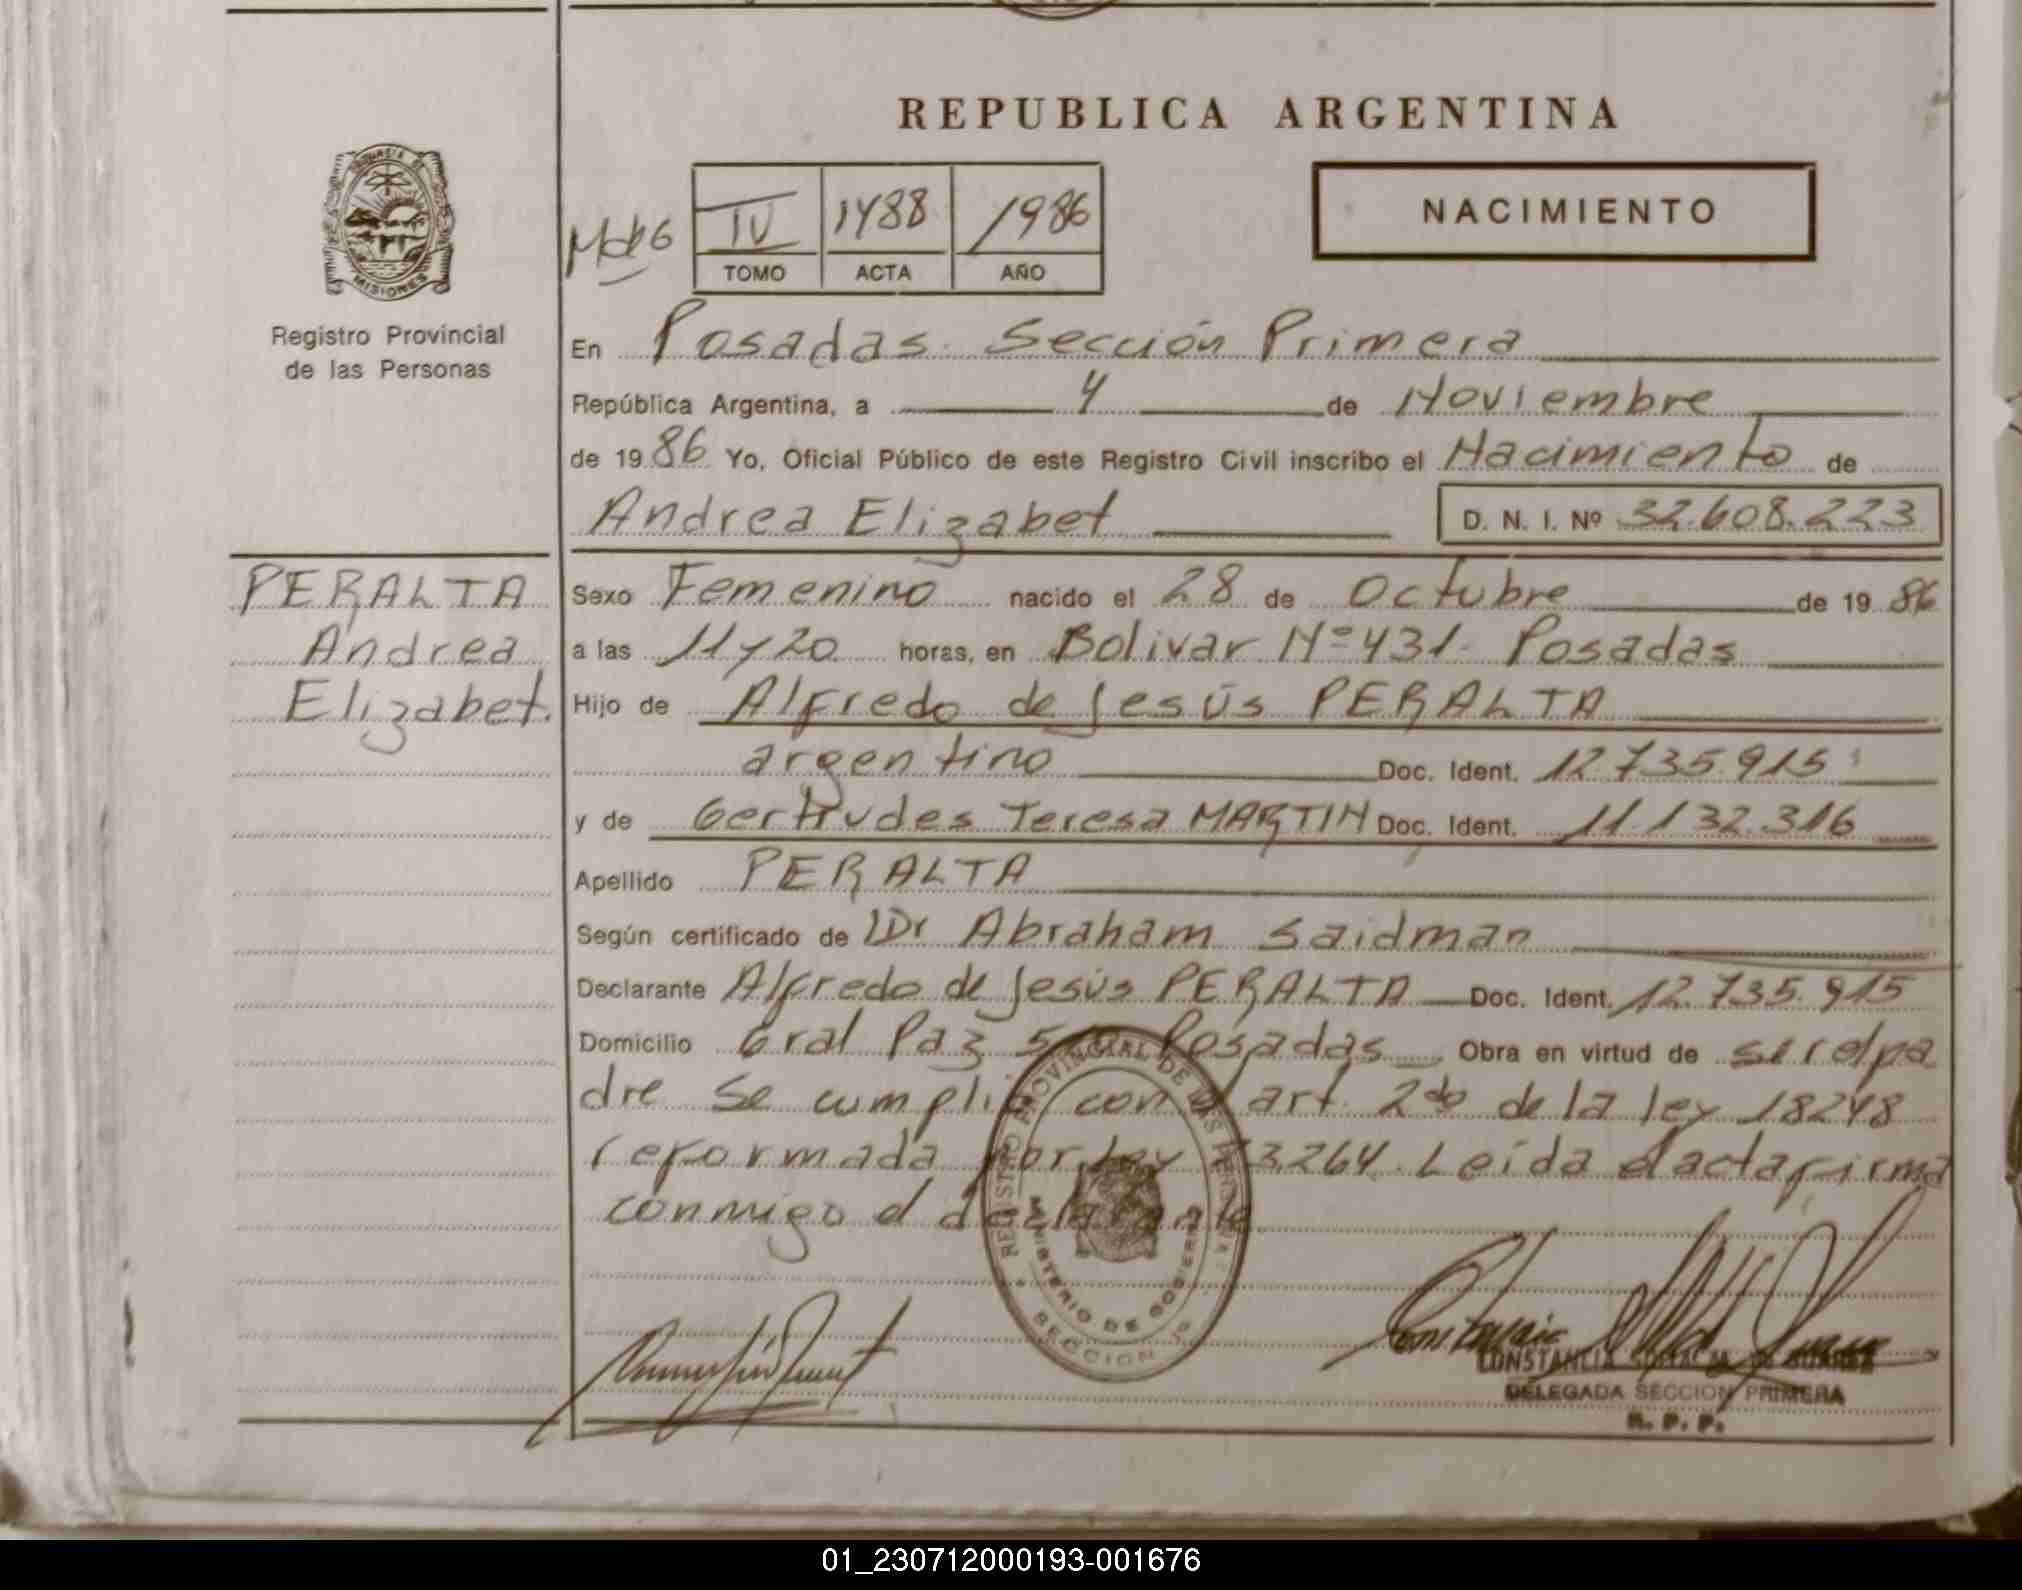 REPUBLICA ARGENTINA
PROVINCIA DE
MISIONES
Registro Provincial
de las Personas
IV 1488 1986
TOMO ACTA AÑO
NACIMIENTO
En Posadas Sección Primera
República Argentina, a 4 de Noviembre
de 1986 Yo, Oficial Público de este Registro Civil inscribo el Nacimiento de
Andrea Elizabet D. N. I. Nº 32.608.223
PERALTA
Andrea
Elizabet.
Sexo Femenino nacido el 28 de Octubre de 1986
a las 11 y 20 horas, en Bolivar Nº 431 Posadas
Hijo de Alfredo de Jesús PERALTA
argentino Doc. Ident. 12.735.915
y de Gertrudes Teresa MARTIN Doc. Ident. 11.132.316
Apellido PERALTA
Según certificado de Dr Abraham Saidman
Declarante Alfredo de Jesús PERALTA Doc. Ident. 12.735.915
Domicilio Gral Paz Posadas Obra en virtud de ser el pa
dre Se cumplió con el art. 2do de la ley 18248
reformada por ley 23264. Leída el acta firma
conmigo el declarante
REGISTRO PROVINCIAL DE LAS PERSONAS
MINISTERIO DE GOBIERNO
SECCION
CONSTANCIA
DELEGADA SECCION PRIMERA
R. P. P.
01_230712000193-001676